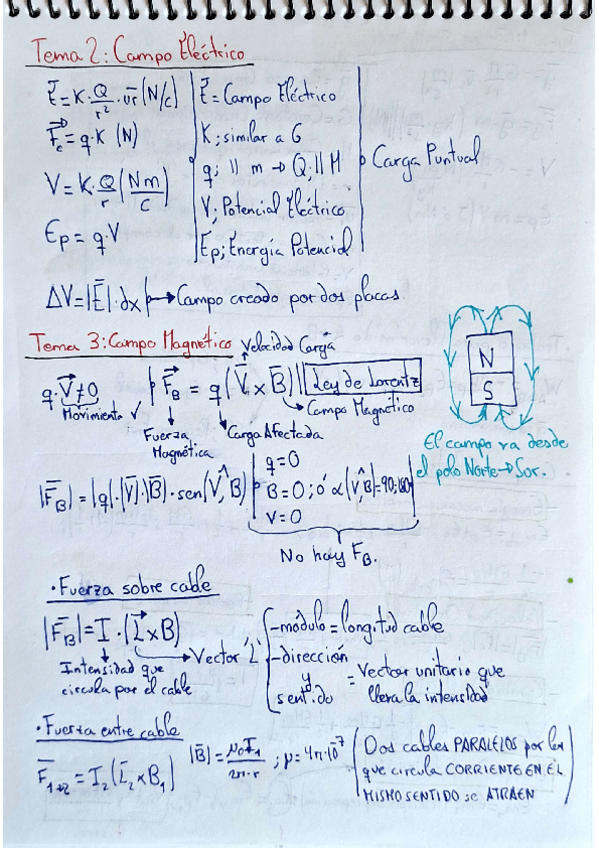 Tema 2: Campo Eléctrico
E̅ = K·Q/r²·u̅r (N/C) | E̅ = Campo Eléctrico
F⃗e = q·K (N) | K; similar a G
q; || m → Q; || M } Carga Puntual
V = K·Q/r (Nm/C) | V; Potencial Eléctrico
Ep = q·V | Ep; Energía Potencial
ΔV = |E̅|·dx → Campo creado por dos placas
Tema 3: Campo Magnético
Velocidad Carga
q·V⃗ ≠ 0 | F⃗B = q(V̅ x B̅) || Ley de Lorentz
Movimiento ✓
Campo Magnético
Fuerza Magnética
Carga Afectada
N
S
El campo va desde
el polo Norte → Sur.
|F̅B| = |q|·|V̅|·|B̅|·sen(V,^B)
q = 0
B = 0; ó α(V,^B) = 90; 180
V = 0
No hay FB.
· Fuerza sobre cable
|F̅B| = I·(L⃗ x B)
Intensidad que
circula por el cable
Vector 'L'
- módulo = longitud cable
- dirección
y
sentido
= Vector unitario que
lleva la intensidad
· Fuerza entre cable
F̅1→2 = I2(L̅2 x B1) |B̅| = μ0·I1/2π·r ; μ = 4π·10⁻⁷
(Dos cables PARALELOS por los
que circula CORRIENTE EN EL
MISMO SENTIDO se ATRAEN)